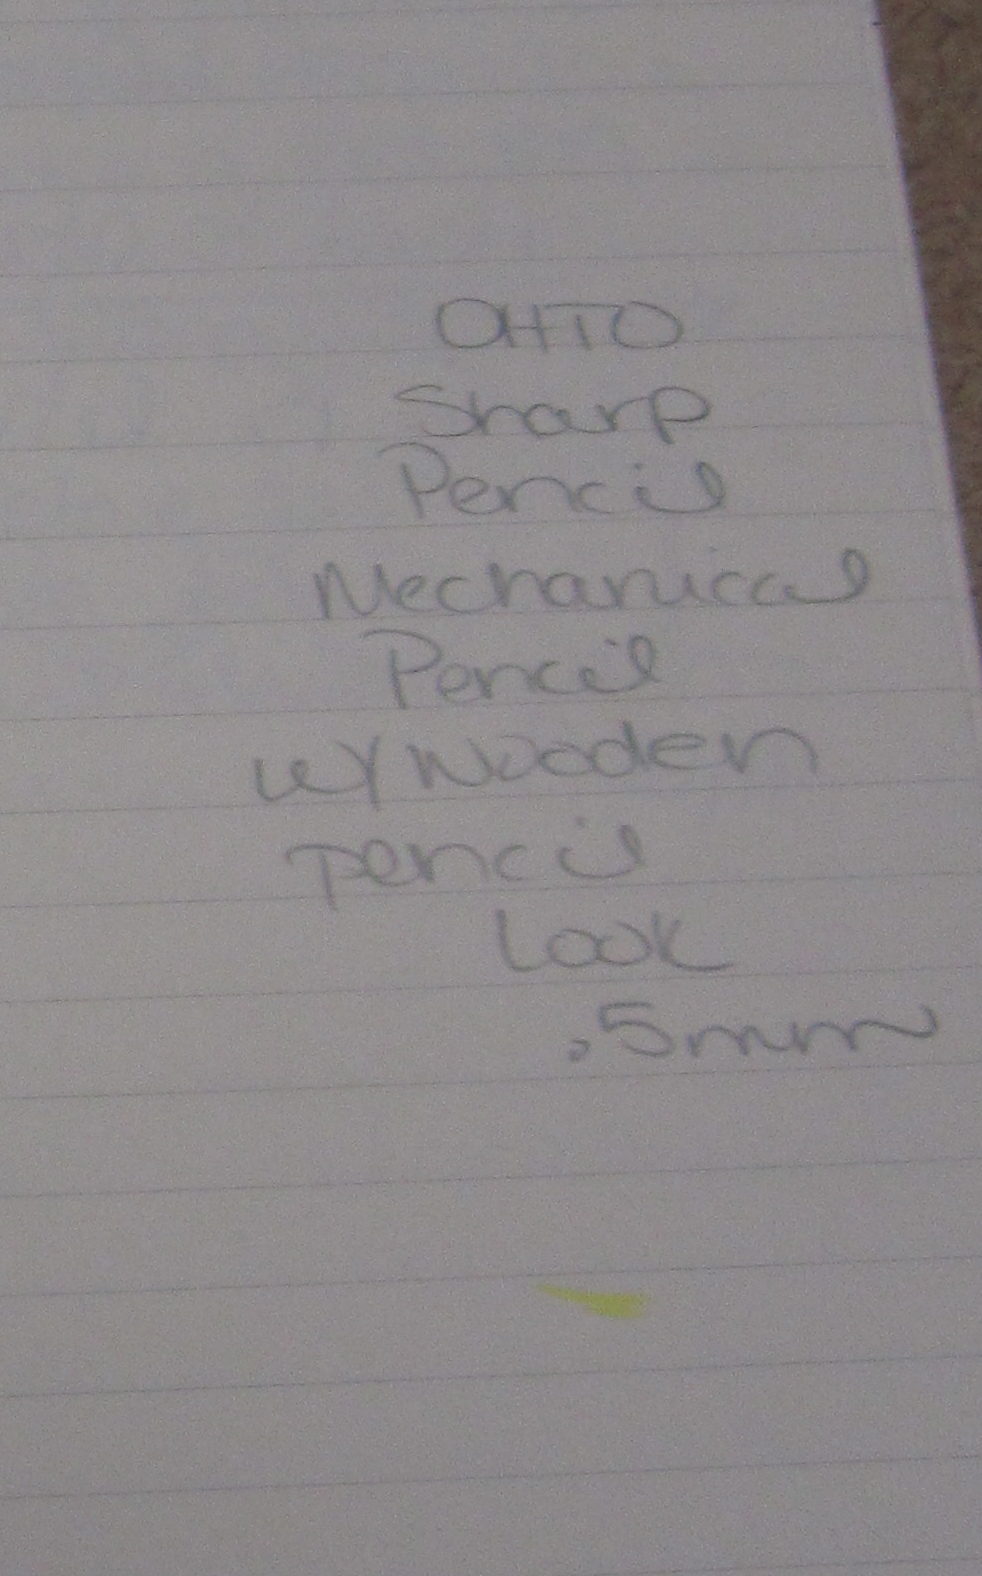 OHTO
Sharp
Pencil
Mechanical
Pencil
w/ Wooden
pencil
Look
.5mm